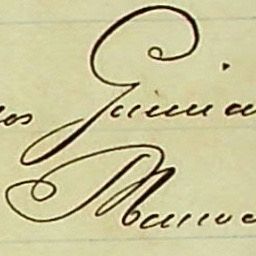 os Guima
Manoe